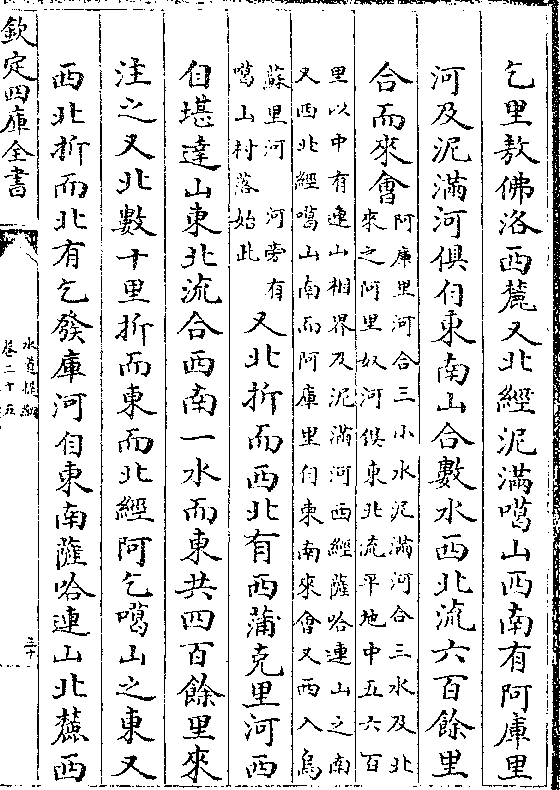 乞里敖佛洛西麓又北經泥滿噶山西南有阿庫里
河及泥滿河俱自東南山合數水西北流六百餘里
合而來會
阿庫里河合三小水泥滿河合三水及北
來之阿里奴河俱東北流平地中五六百
里以中有連山相界及泥滿河西經薩哈連山之南
又西北經噶山南而阿庫里自東南來會又西入烏
蘇里河 河旁有
噶山村落始此
又北折而西北有西蒲克里河西
自堪達山東北流合西南一水而東共四百餘里來
注之又北數十里折而東而北經阿乞噶山之東又
西北折而北有乞發庫河自東南薩哈連山北麓西
欽定四庫全書
水道提綱
卷二十五
三十